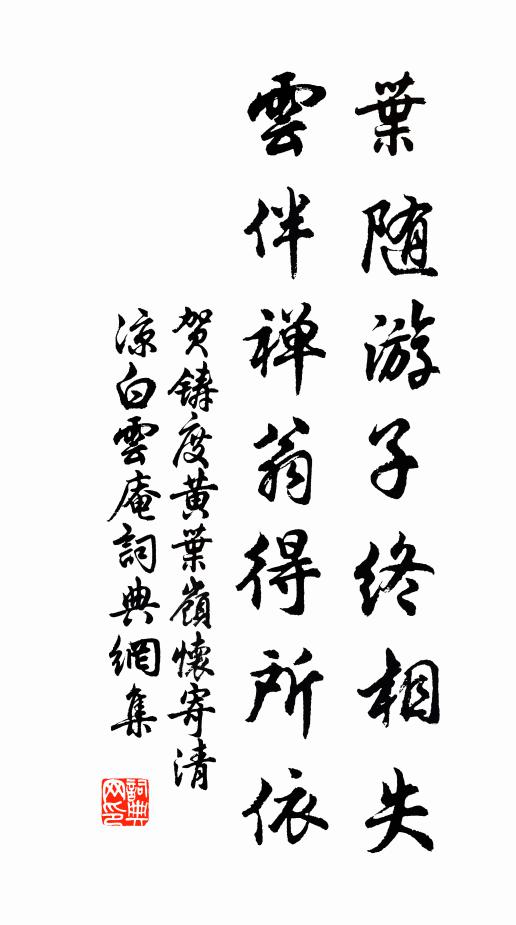 葉随游子终相失
雲伴禅翁得所依
贺鑄度黄葉嶺懷寄清
凉白雲庵詞典網集
詞典网印